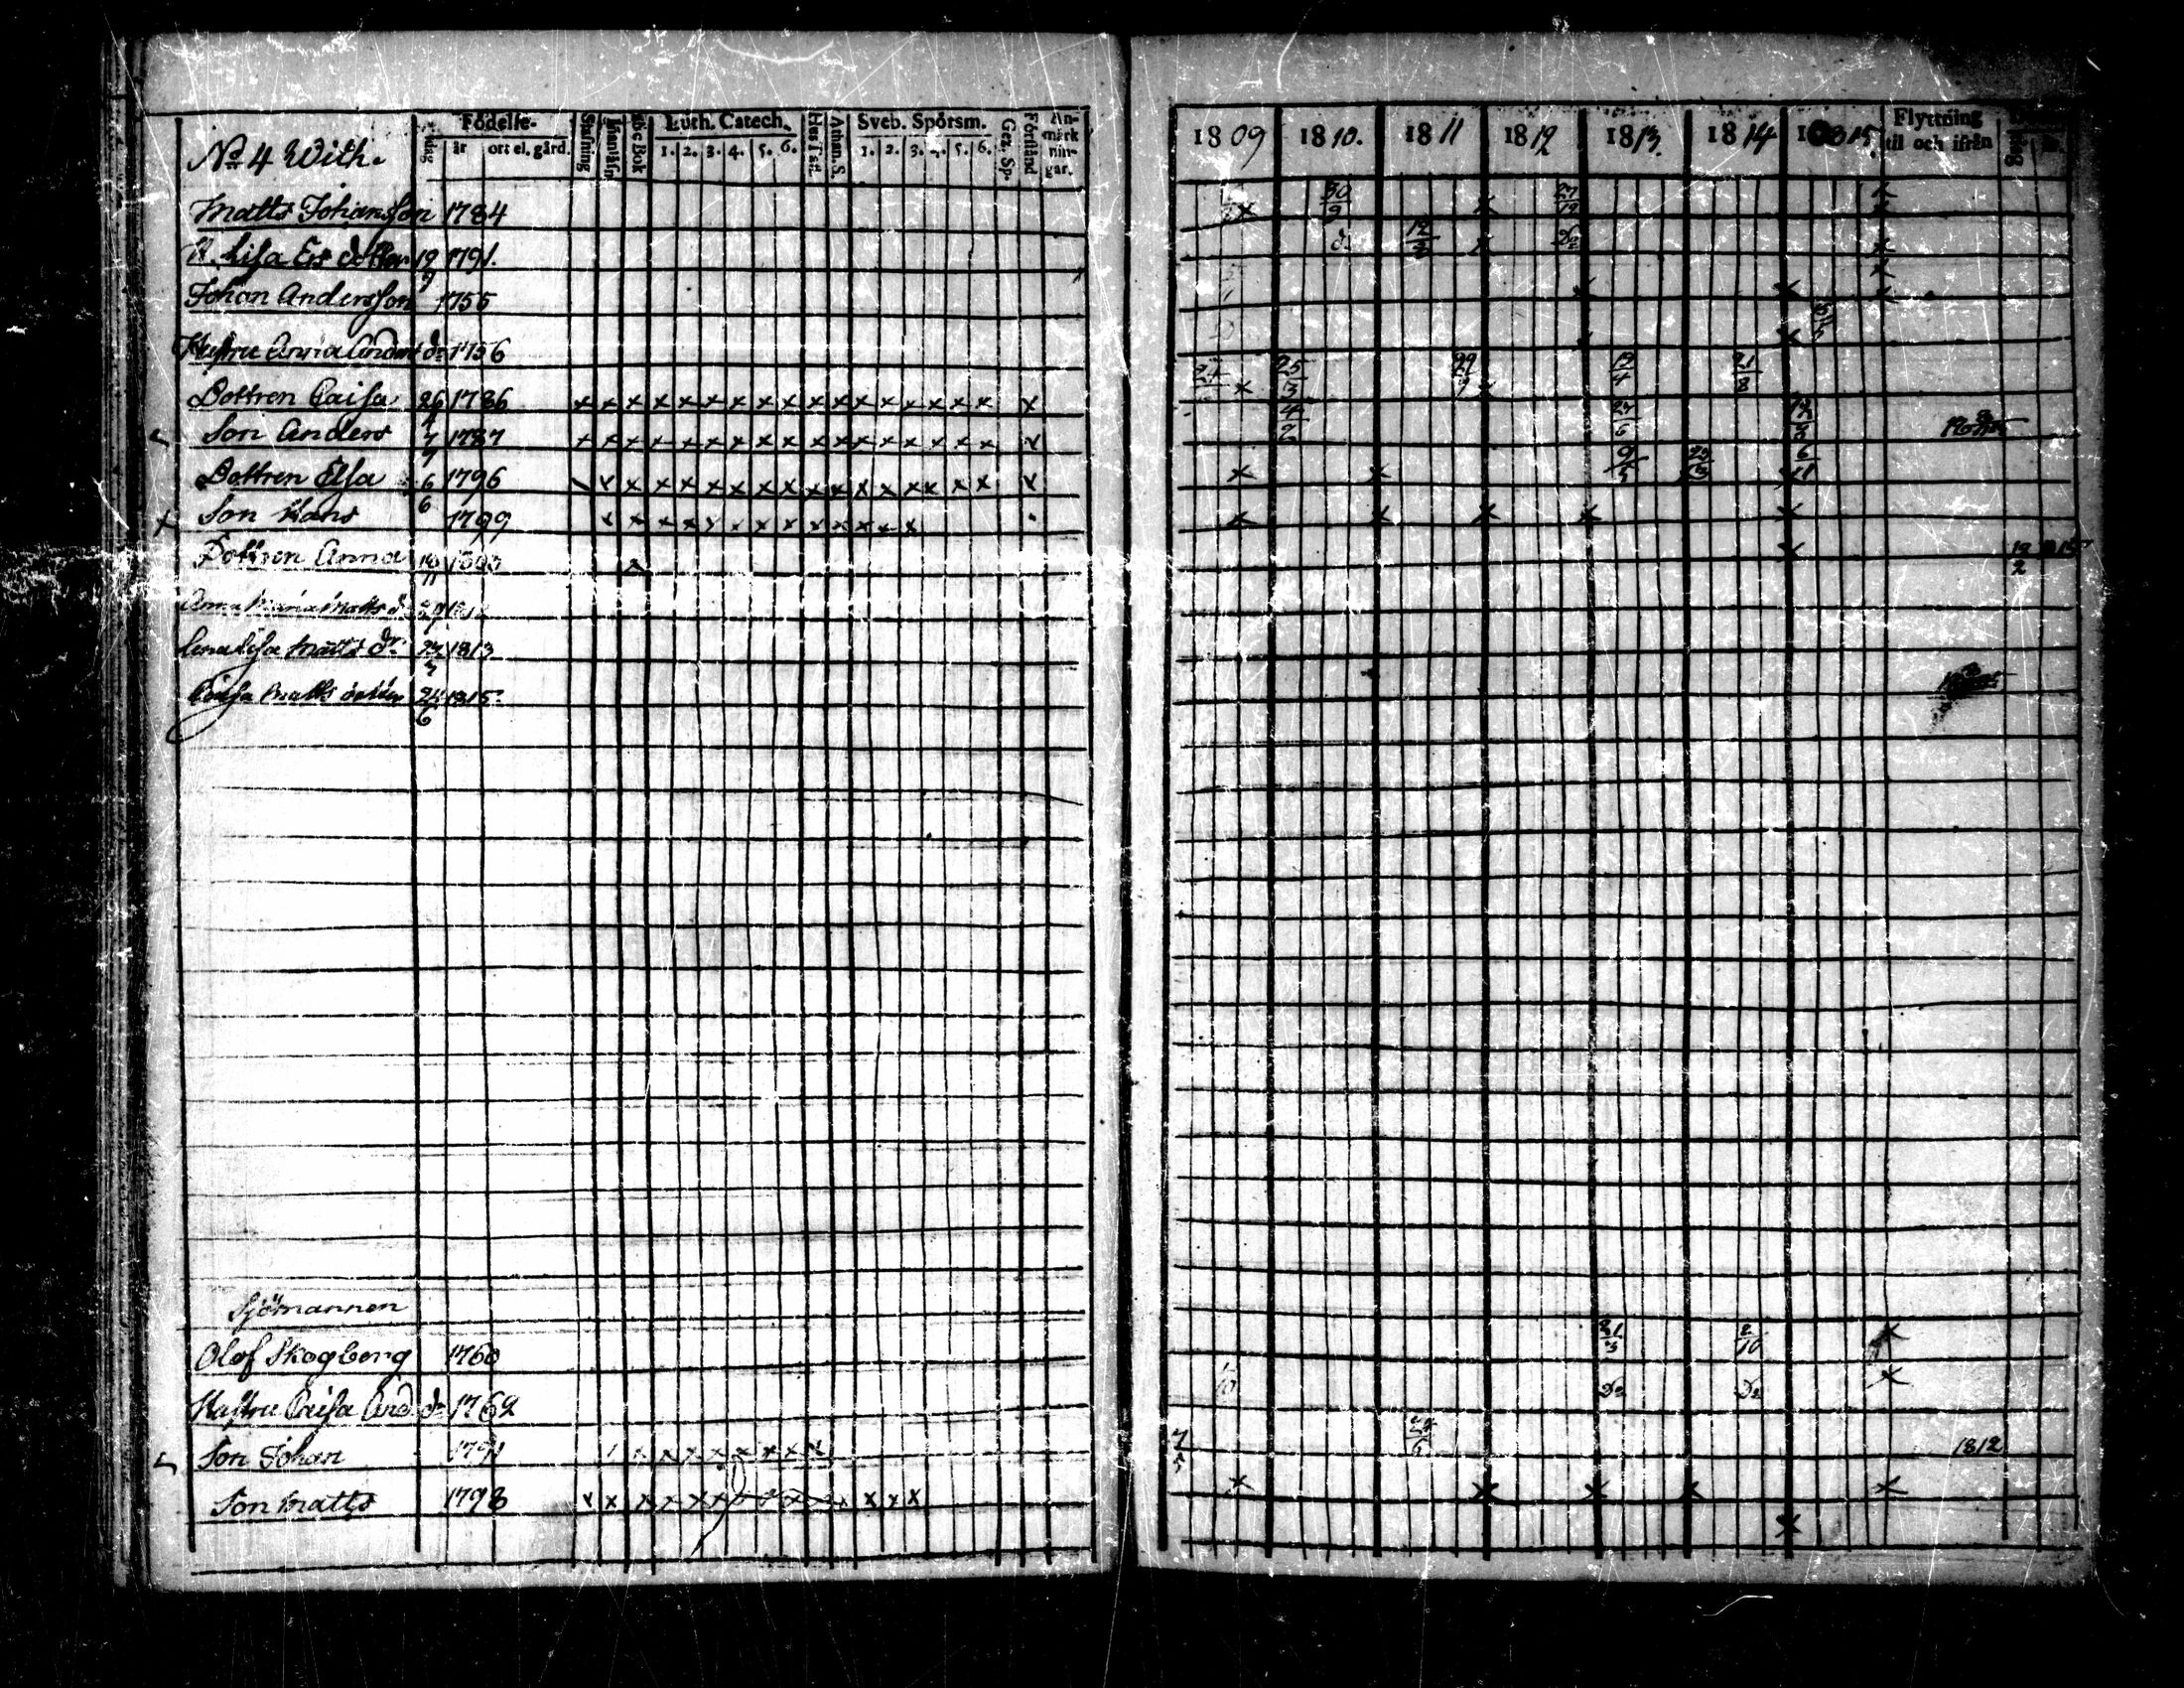 No 4 With.
Födelse-
dag år ort el. gård.
Stafning
Innanläsn
Abc Bok
Luth. Catech.
1. 2. 3. 4. 5. 6.
Hus Tafl.
Athan. S.
Sveb. Spörsm.
1. 2. 3. 4. 5. 6.
Gez. Sp.
Förstånd
An-
märk
nin-
gar.
1809 1810. 1811 1812 1813. 1814 1815
Flyttning
til och ifrån
Matts Johansson 1784 x 30/9 x 27/12 x
H. Lisa Ers dotter 19/9 1791. do 12/2 x Do x
Johan Andersson 1755 x x x
Hustru Anna Anders dr 1756 x
Dottren Caisa 26/4 1786 x x x x x x x x x x x x x x x x x x x 25/3 29/9 x 19/4 21/8
Son Anders 7/7 1787 x x x x x x x x x x x x x x x x x x 4/2 27/6
Dottren Elsa 6/6 1796 x x x x x x x x x x x x x x x x x x x x 9/5 6/11
Son Hans 1799 x x x x x x x x x x x x x x x x x x
Dottren Anna x x 12/2
Anna Maria Matts d
Lena Lisa Matts dr 1813
Caisa Matts dotter 24/6 1815.
Sjömannen
Olof Skogberg 1760 21/3 2/10 x
Hustru Caisa And. dr 1762 Do Do x
Son Johan 1791 x x x x x x x x 24/6 1812
Son Matts 1798 x x x x x x x x x x x x x x x x x x x
x